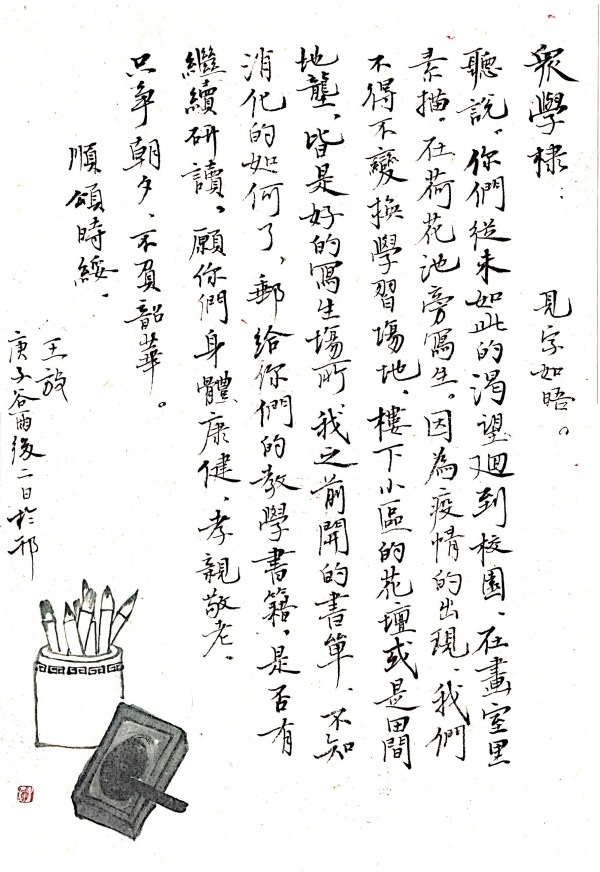 眾學棣：見字如晤。
聽說，你們從未如此的渴望廻到校園、在畫室里
素描，在荷花池旁寫生。因為疫情的出現、我們
不得不變換學習場地、樓下小區的花壇或是田間
地壟，皆是好的寫生場所，我之前開的書單、不知
消化的如何了，郵給你們的教學書籍，是否有
繼續研讀。願你們身體康健、孝親敬老，
只爭朝夕、不負韶華。
順頌時綏，
王毅
庚子谷雨後二日於邗